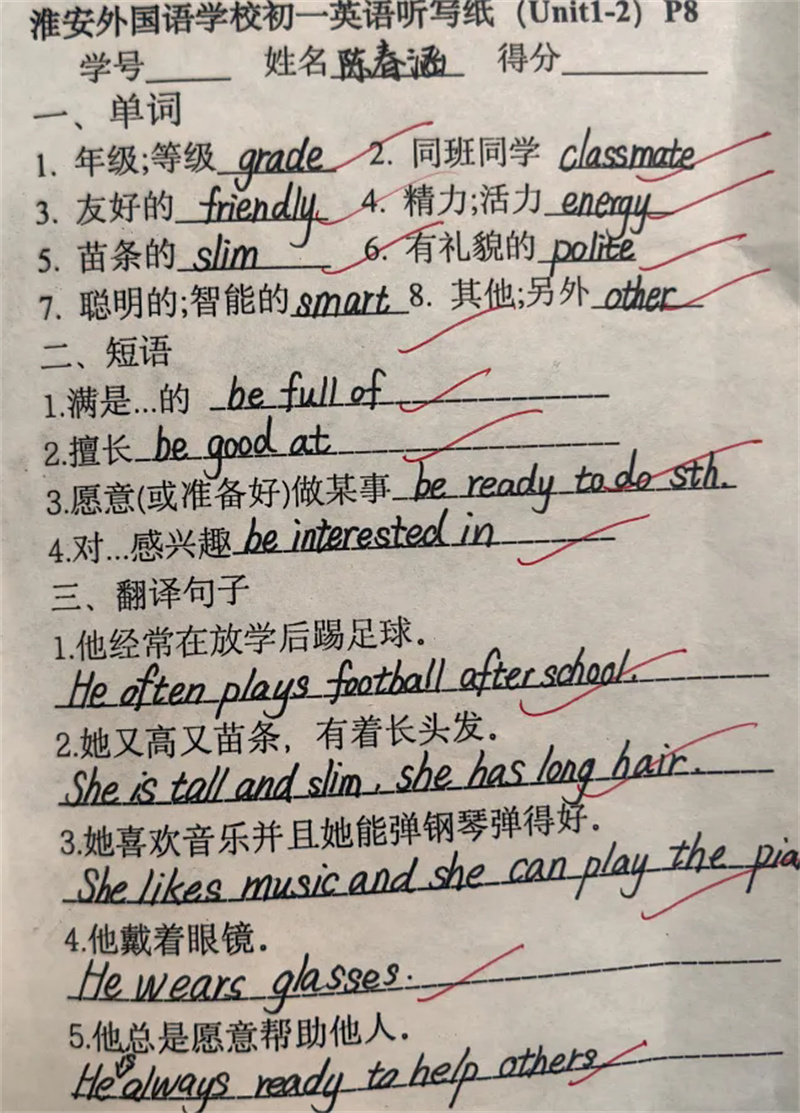 淮安外国语学校初一英语听写纸（Unit1-2）P8
学号 姓名 陈春涵 得分
一、单词
1. 年级;等级 grade 2. 同班同学 classmate
3. 友好的 friendly 4. 精力;活力 energy
5. 苗条的 slim 6. 有礼貌的 polite
7. 聪明的;智能的 smart 8. 其他;另外 other
二、短语
1.满是...的 be full of
2.擅长 be good at
3.愿意(或准备好)做某事 be ready to do sth.
4.对...感兴趣 be interested in
三、翻译句子
1.他经常在放学后踢足球。
He often plays football after school.
2.她又高又苗条，有着长头发。
She is tall and slim, she has long hair.
3.她喜欢音乐并且她能弹钢琴弹得好.
She likes music and she can play the pia
4.他戴着眼镜。
He wears glasses.
5.他总是愿意帮助他人.
He is always ready to help others